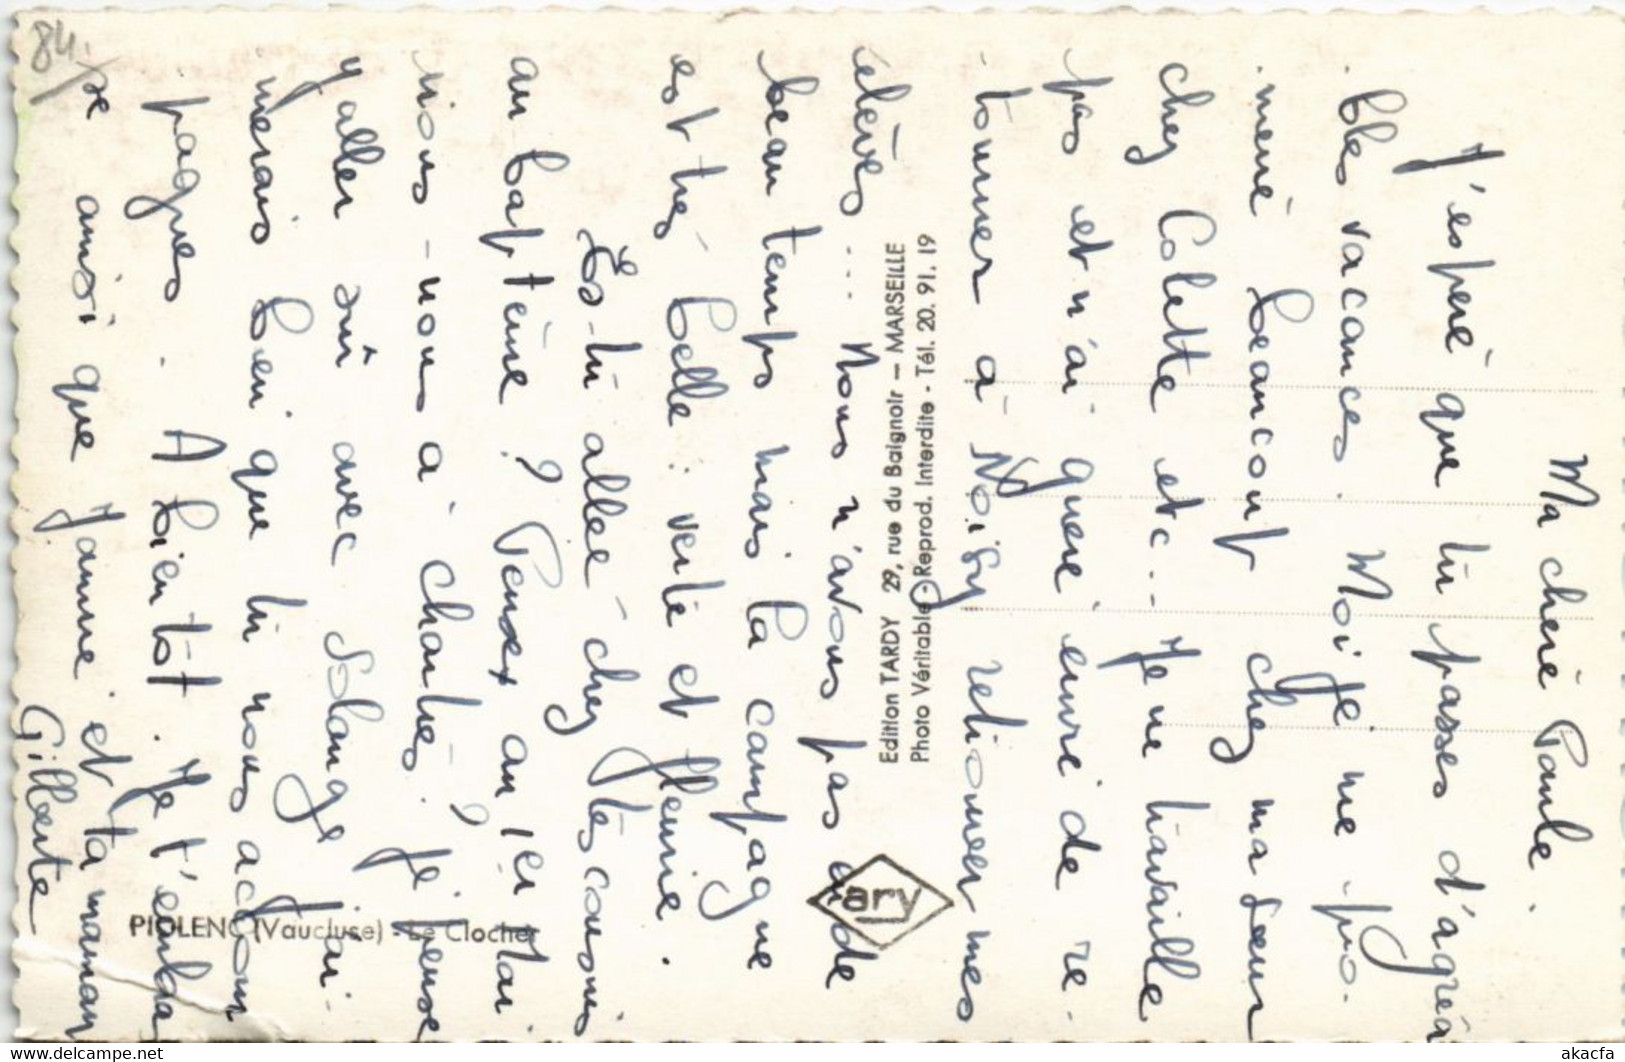 Ma chère Paule.
J'espère que tu passes d'agréa
bles vacances. Moi je me pro.
mène beaucoup chez ma soeur
chez Colette etc... Je ne travaille
pas et n'ai guère envie de re.
tourner à Noisy retrouver mes
élèves.... Nous n'avons pas de
beau temps mais la campagne
est très belle : verte et fleurie.
Es-tu allée chez
au baptême ? Peux au 1er Mai
irons-nous à Chartres ? Je pense
y aller soit avec Solange j'ai.
merais bien que tu nous accom
pagnes. A bientôt. Je t'embras
se ainsi que Janine et ta maman
Gilberte
84
Edition TARDY 29, rue du Baignoir — MARSEILLE
Photo Véritable - Reprod. Interdite - Tél. 20. 91. 19
ary
PIOLENC (Vaucluse) - Le Clocher
https://www.delcampe.net
akacfa